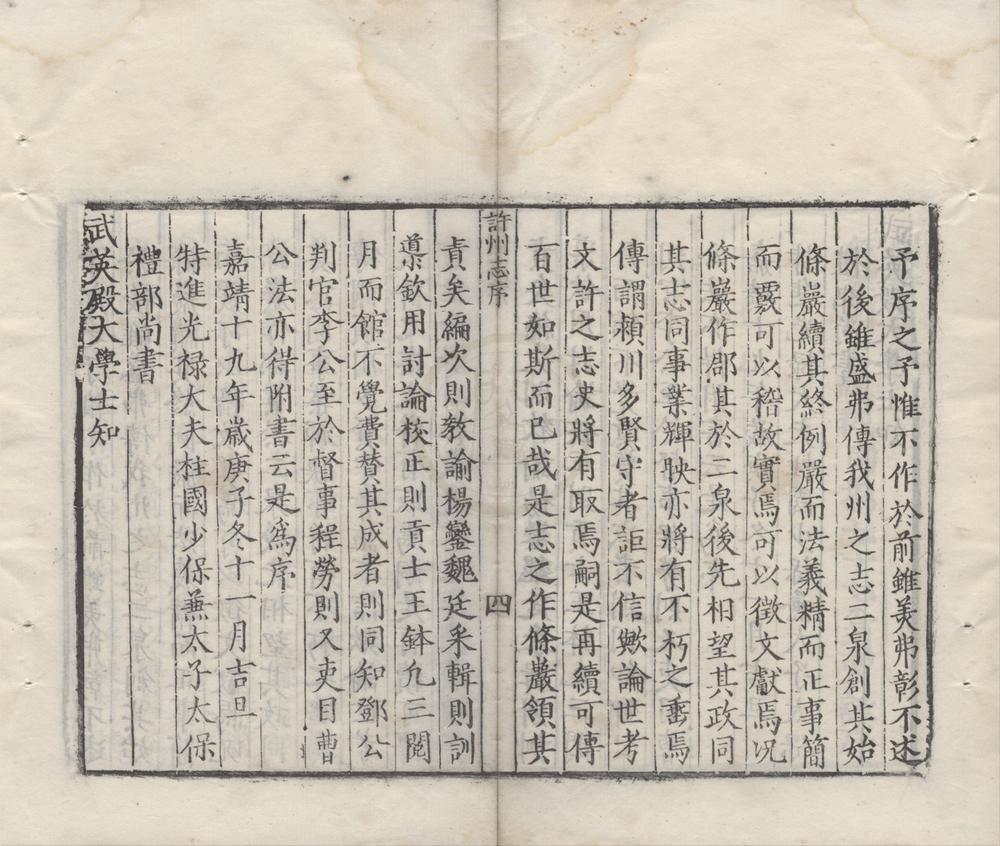 予序之予惟不作於前雖美弗彰不述
於後雖盛弗傳我州之志二泉創其始
條巖續其終例嚴而法義精而正事簡
而覈可以稽故實焉可以徵文獻焉况
條巖作郡其於二泉後先相望其政同
其志同事業輝映亦將有不朽之埀焉
傳謂潁川多賢守者詎不信歟論世考
文許之志史將有取焉嗣是再續可傳
百世如斯而已哉是志之作條巖領其
許州志序
四
責矣編次則教諭楊鑾魏廷采輯則訓
導欽用討論校正則貢士王鉢凡三閱
月而館不覺費賛其成者則同知鄧公
判官李公至於督事程勞則又吏目曹
公法亦得附書云是爲序
嘉靖十九年歲庚子冬十一月吉旦
特進光禄大夫柱國少保兼太子太保
禮部尚書
武英殿大學士知